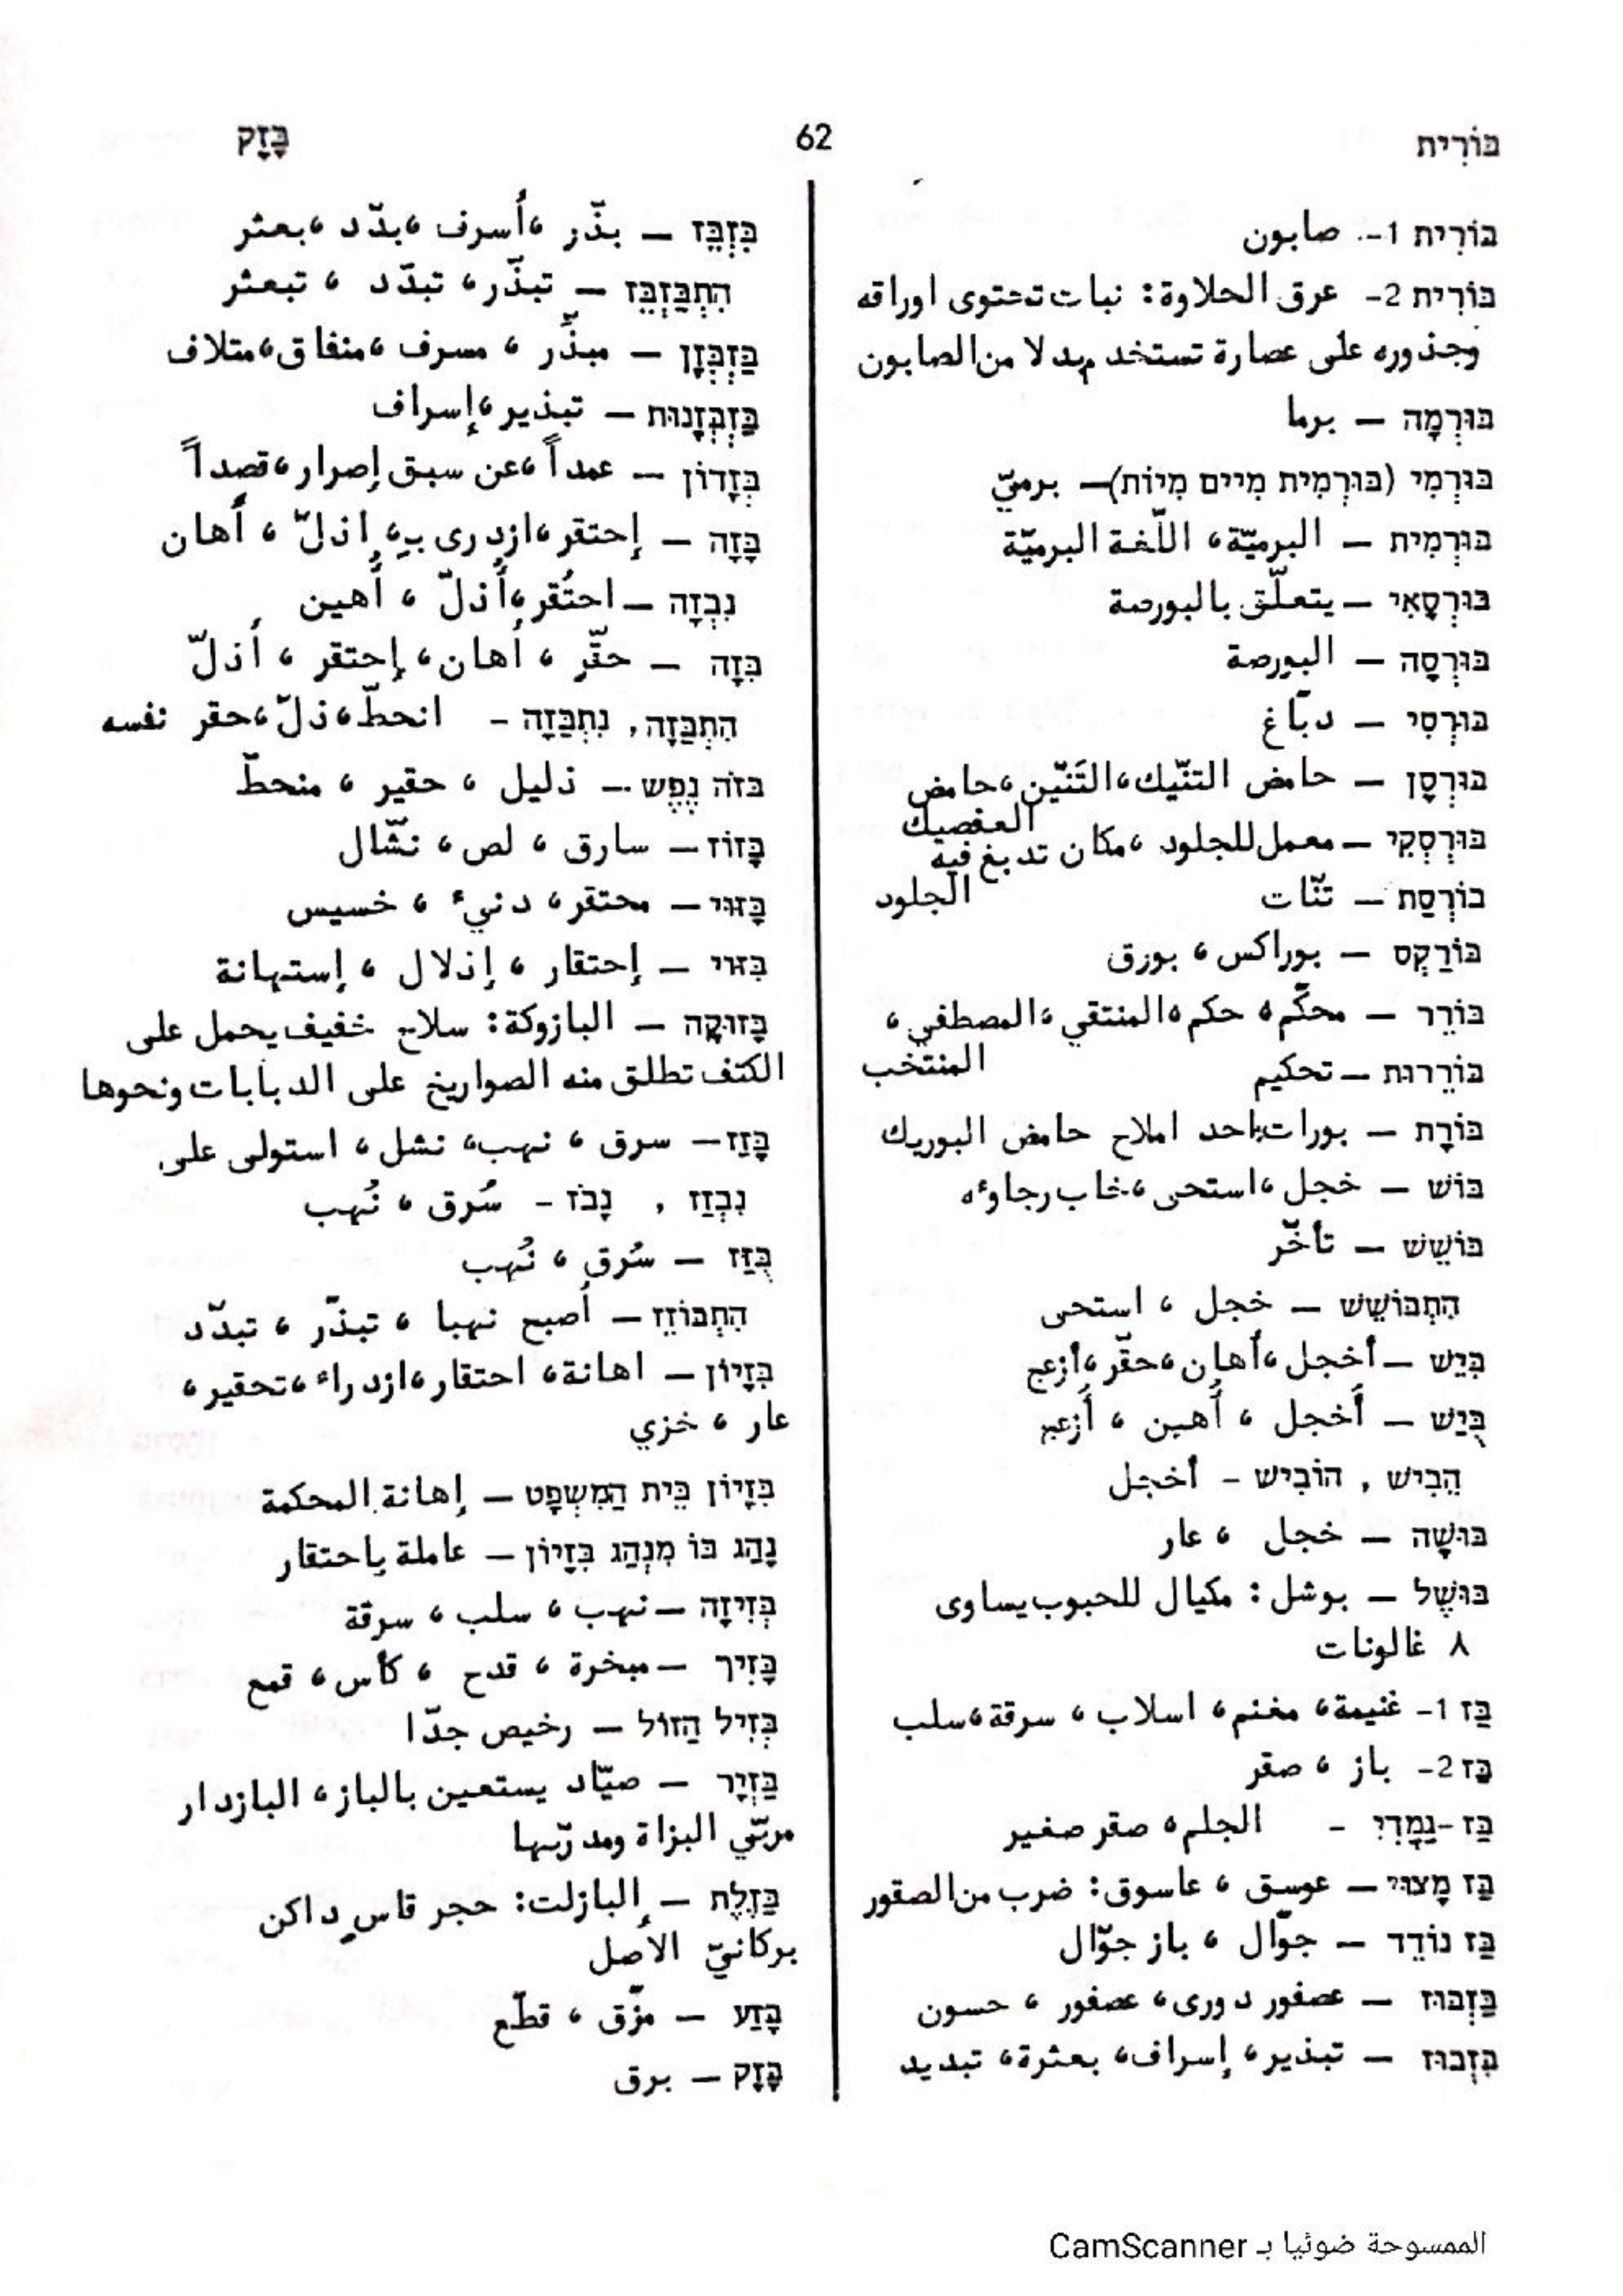 בּוֹרִית
62
בָּזָק
בּוֹרִית 1- صابون
בּוֹרִית 2- عرق الحلاوة: نبات تحتوى اوراقه
وجذوره على عصارة تستخدم بدلا من الصابون
בּוּרְמָה — برما
בּוּרְמִי (בּוּרְמִית מִיים מִיוֹת)— برميّ
בּוּרְמִית — البرميّة، اللّغة البرميّة
בּוּרְסָאִי — يتعلّق بالبورصة
בּוּרְסָה — البورصة
בּוּרְסִי — دبّاغ
בּוּרְסָן — حامض التنّيك، التَنّين، حامض
العفصيك
בּוּרְסְקִי — معمل للجلود، مكان تدبغ فيه
الجلود
בּוֹרְסַת — تنّات
בּוֹרַקְס — بوراكس، بورق
בּוֹרֵר — محكّم، حكم، المنتقي، المصطفي،
المنتخب
בּוֹרֵרוּת — تحكيم
בּוֹרָת — بورات: احد املاح حامض البوريك
בּוֹשׁ — خجل، استحى، خاب رجاوءه
בּוֹשֵׁשׁ — تأخّر
הִתְבּוֹשֵׁשׁ — خجل، استحى
בִּיֵּשׁ — أخجل، أهان، حقّر، أزعج
בֻּיַּשׁ — أُخجل، أُهين، أُزعج
הֵבִישׁ, הוֹבִישׁ - أخجل
בּוּשָׁה — خجل، عار
בּוּשֶׁל — بوشل: مكيال للحبوب يساوى
٨ غالونات
בַּז 1- غنيمة، مغنم، اسلاب، سرقة، سلب
בַּז 2- باز، صقر
בַּז-גַמָּדִי - الجلم، صقر صغير
בַּז מָצוּי — عوسق، عاسوق: ضرب من الصقور
בַּז נוֹדֵד — جوّال، باز جوّال
בַּזְבּוּז — عصفور دورى، عصفور، حسون
בִּזְבּוּז — تبذير، إسراف، بعثرة، تبديد
בִּזְבֵּז — بذّر، أسرف، بدّد، بعثر
הִתְבַּזְבֵּז — تبذّر، تبدّد، تبعثر
בַּזְבְּזָן — مبذّر، مسرف، منفاق، متلاف
בַּזְבְּזָנוּת — تبذير، إسراف
בְּזָדוֹן — عمداً، عن سبق إصرار، قصداً
בָּזָה — إحتقر، ازدرى بـ، إذلّ، أهان
נִבְזָה — احتُقر، أُذلّ، أُهين
בִּזָּה — حقّر، أهان، إحتقر، أذلّ
הִתְבַּזָּה, נִתְבַּזָּה - انحطّ، ذلّ، حقر نفسه
בּזֹה נֶפֶשׁ — ذليل، حقير، منحطّ
בָּזוֹז — سارق، لص، نشّال
בָּזוּי — محتقر، دنيء، خسيس
בִּזּוּי — إحتقار، إذلال، إستهانة
בָּזוּקָה — البازوكة: سلاح خفيف يحمل على
الكتف تطلق منه الصواريخ على الدبابات ونحوها
בָּזַז — سرق، نهب، نشل، استولى على
נִבְזַז, נָבֹז - سُرق، نُهب
בֻּזַּז — سُرق، نُهب
הִתְבּוֹזֵז — أصبح نهبا، تبذّر، تبدّد
בִּזָּיוֹן — اهانة، احتقار، ازدراء، تحقير،
عار، خزي
בִּזָּיוֹן בֵּית הַמִּשְׁפָּט — إهانة المحكمة
נָהַג בּוֹ מִנְהַג בִּזָּיוֹן — عاملة بإحتقار
בְּזִיזָה — نهب، سلب، سرقة
בָּזִיךְ — مبخرة، قدح، كأس، قمع
בְּזִיל הַזּוֹל — رخيص جدّا
בַּזְיָר — صيّاد يستعين بالباز، البازدار
مربّي البزاة ومدرّبها
בַּזֶּלֶת — البازلت: حجر قاس داكن
بركانيّ الأصل
בָּזַע — مزّق، قطّع
בָּזָק — برق
الممسوحة ضوئيا بـ CamScanner